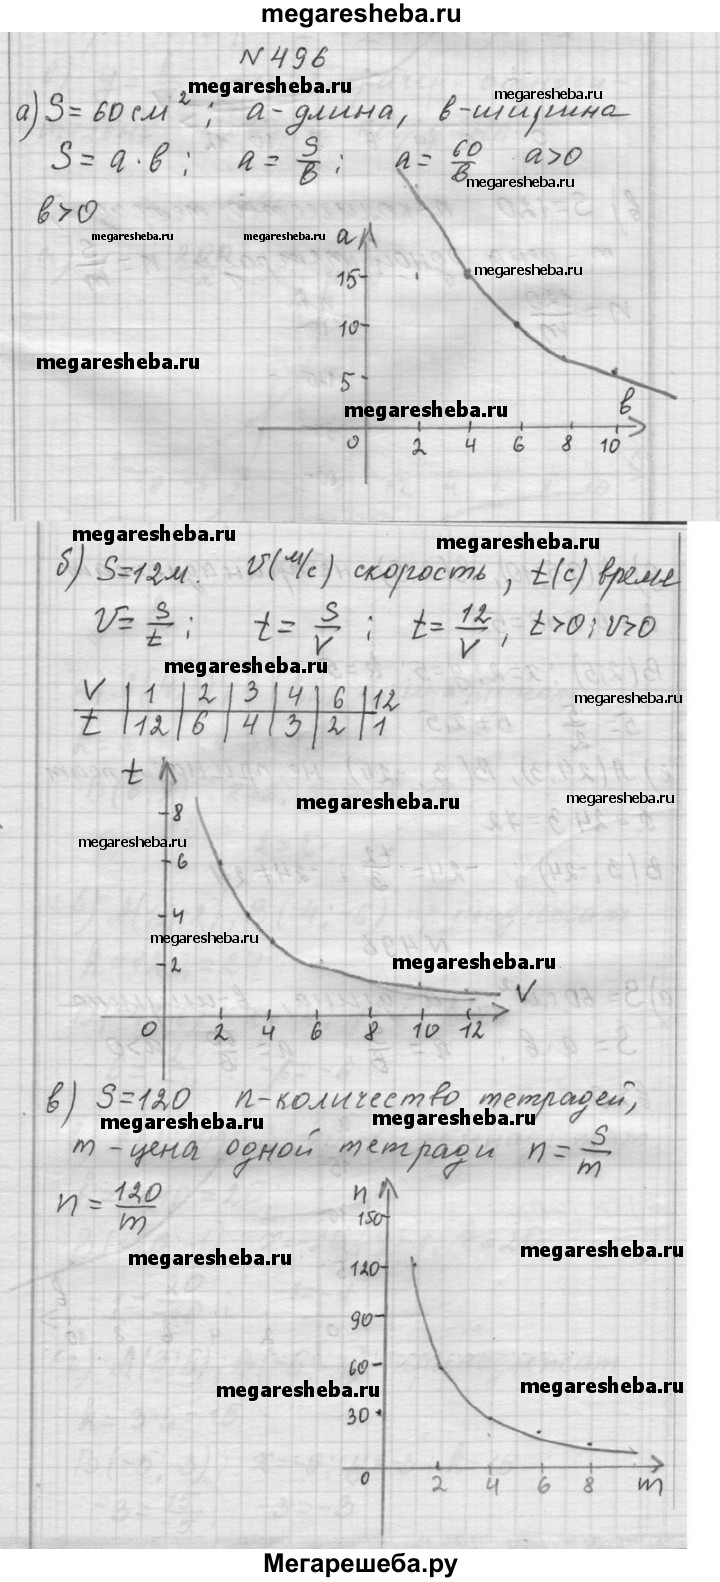 megaresheba.ru
N 496
megaresheba.ru
megaresheba.ru
а) S = 60 см²; a - длина, в - ширина
S = a · в; a = S/в; a = 60/в a>0
megaresheba.ru
в>0
megaresheba.ru
megaresheba.ru
a
megaresheba.ru
15
10
megaresheba.ru
5
megaresheba.ru
в
0 2 4 6 8 10
megaresheba.ru
megaresheba.ru
б) S=12м. V(м/с) скорость, t(с) время
V = S/t; t = S/V; t = 12/V, t>0; V>0
megaresheba.ru
megaresheba.ru
V | 1 | 2 | 3 | 4 | 6 | 12
t | 12 | 6 | 4 | 3 | 2 | 1
t
megaresheba.ru
megaresheba.ru
8
megaresheba.ru
6
4
megaresheba.ru
megaresheba.ru
2
V
0 2 4 6 8 10 12
в) S=120 n - количество тетрадей,
megaresheba.ru
megaresheba.ru
m - цена одной тетради n = S/m
n = 120/m
n
150
megaresheba.ru
megaresheba.ru
120
90
60
megaresheba.ru
megaresheba.ru
30
0 2 4 6 8 m
Мегарешеба.ру